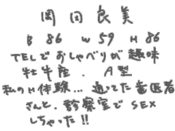 岡田良美
B 86 W 59 H 86
TELでおしゃべりが趣味
牡牛座．A型
私のH体験…通ってた歯医者
さんと、診察室でSEX
しちゃった!!